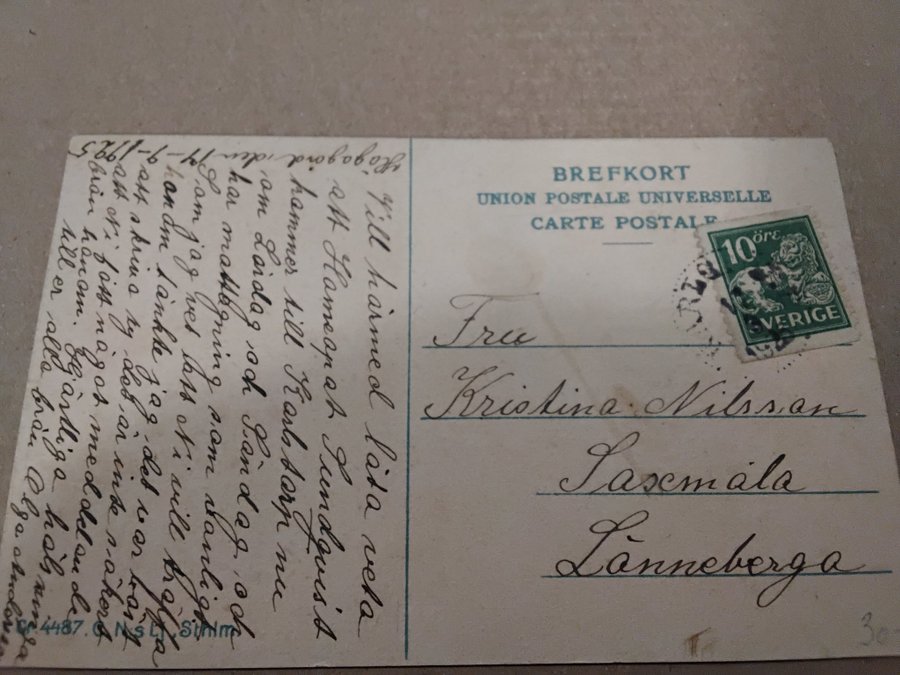 Högagärd den 14-9-1925
Vill härmed låta veta
att Homeopat Lundqvist
kommer till Karlstorp nu
om Lördag och Söndag, och
har mottagning som vanligt
Som jag vet att Ni vill träffa
honom tänkte jag det var bäst
att skriva ty det är inte säkert
att Ni fått något meddelande
från honom. Hjärtliga hälsninga
till er alla från Olga
BREFKORT
UNION POSTALE UNIVERSELLE
CARTE POSTALE
10 öre
SVERIGE
Fru
Kristina Nilsson
Saxemåla
Lönneberga
Gr 4487. C. N:s Lj. Sthlm.
30-